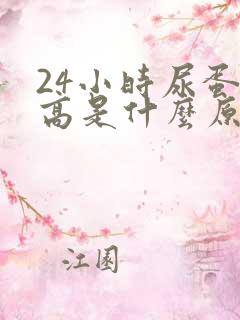 24小時尿蛋
高是什麼原
江園